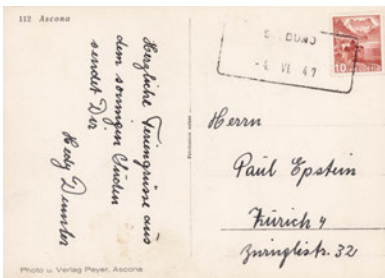 112 Ascona
Herzliche Feriengrüsse aus
dem sonnigen Süden
sendet Dir
Hedy
Photo u. Verlag Peyer, Ascona
-4. VI. 47
10
HELVETIA
Herrn
Paul Epstein
Zürich 4
Zwinglistr. 32